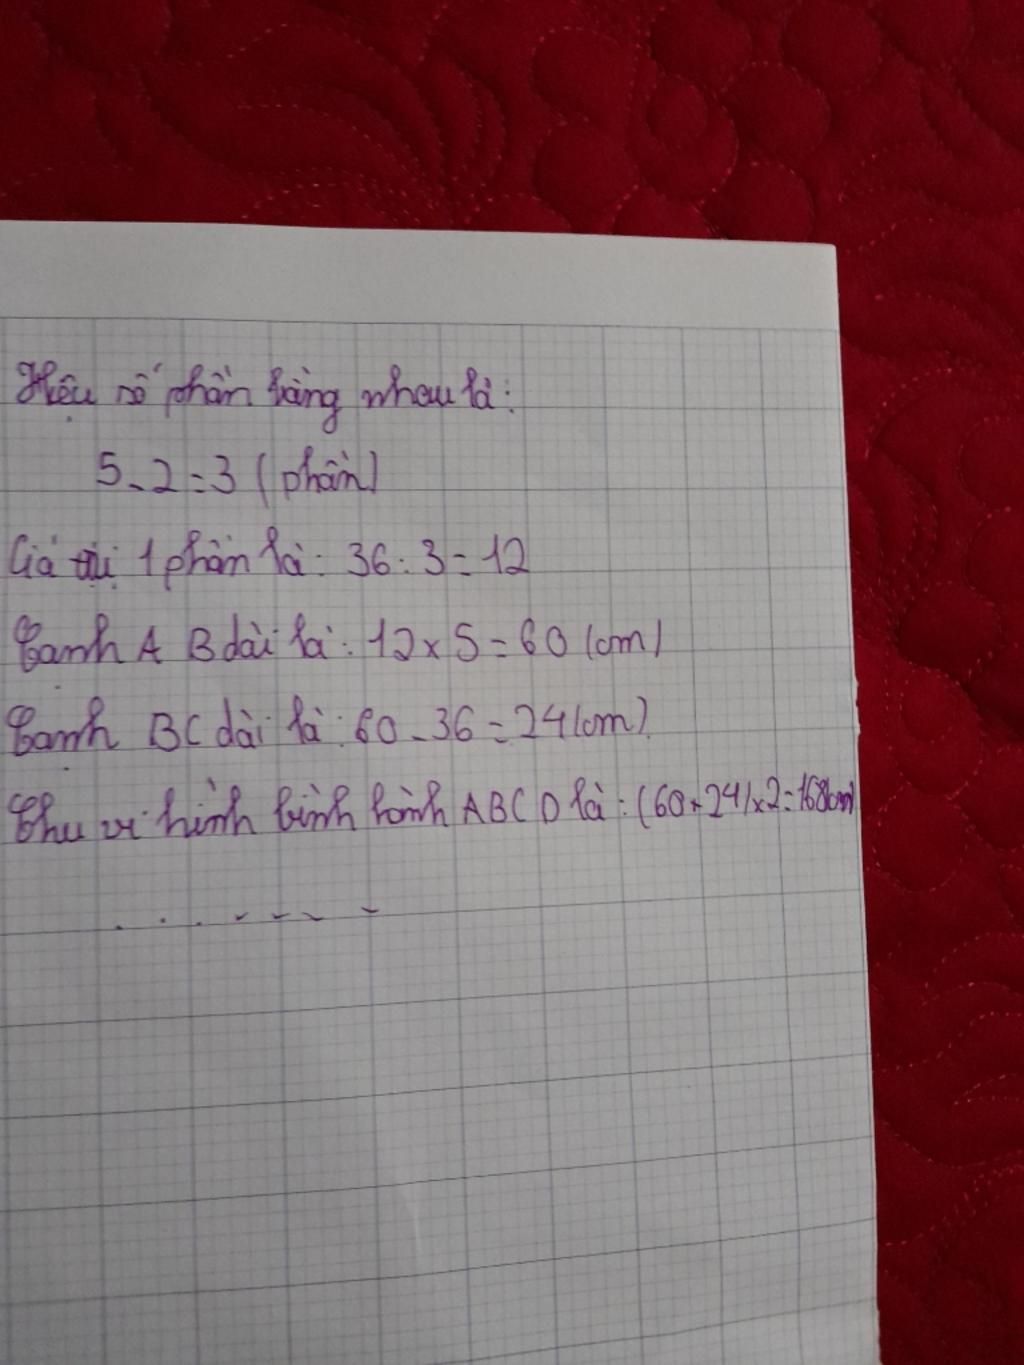 Hiệu số phần bằng nhau là:
5-2=3 (phần)
Giá trị 1 phần là: 36:3=12
Cạnh AB dài là: 12x5=60 (cm)
Cạnh BC dài là: 60-36=24 (cm)
Chu vi hình bình hành ABCD là: (60+24)x2=168cm)